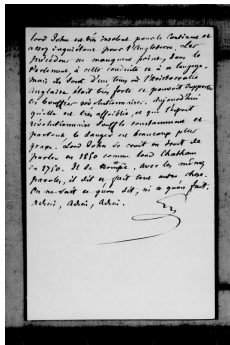 Lord John est très insolent pour le Continent et
assez inquiétant pour l'Angleterre. Les
précédens ne manquent point, dans le
Parlement, à cette conduite et à ce langage.
mais du tems d'un tems où l'Aristocratie
anglaise était très forte et pouvait supporter
les bouffées révolutionnaires. Aujourd'hui
qu'elle est très affaiblie, et que l'esprit
révolutionnaire souffle constamment et
partout, le danger est beaucoup plus
grave. Lord John se croit en droit de
parler en 1850 comme lord Chatham
en 1750. Il se trompe. avec les mêmes
paroles, il dit et fait tout autre chose.
On ne sait ce qu'on dit, ni ce qu'on fait.
Adieu, Adieu, Adieu.